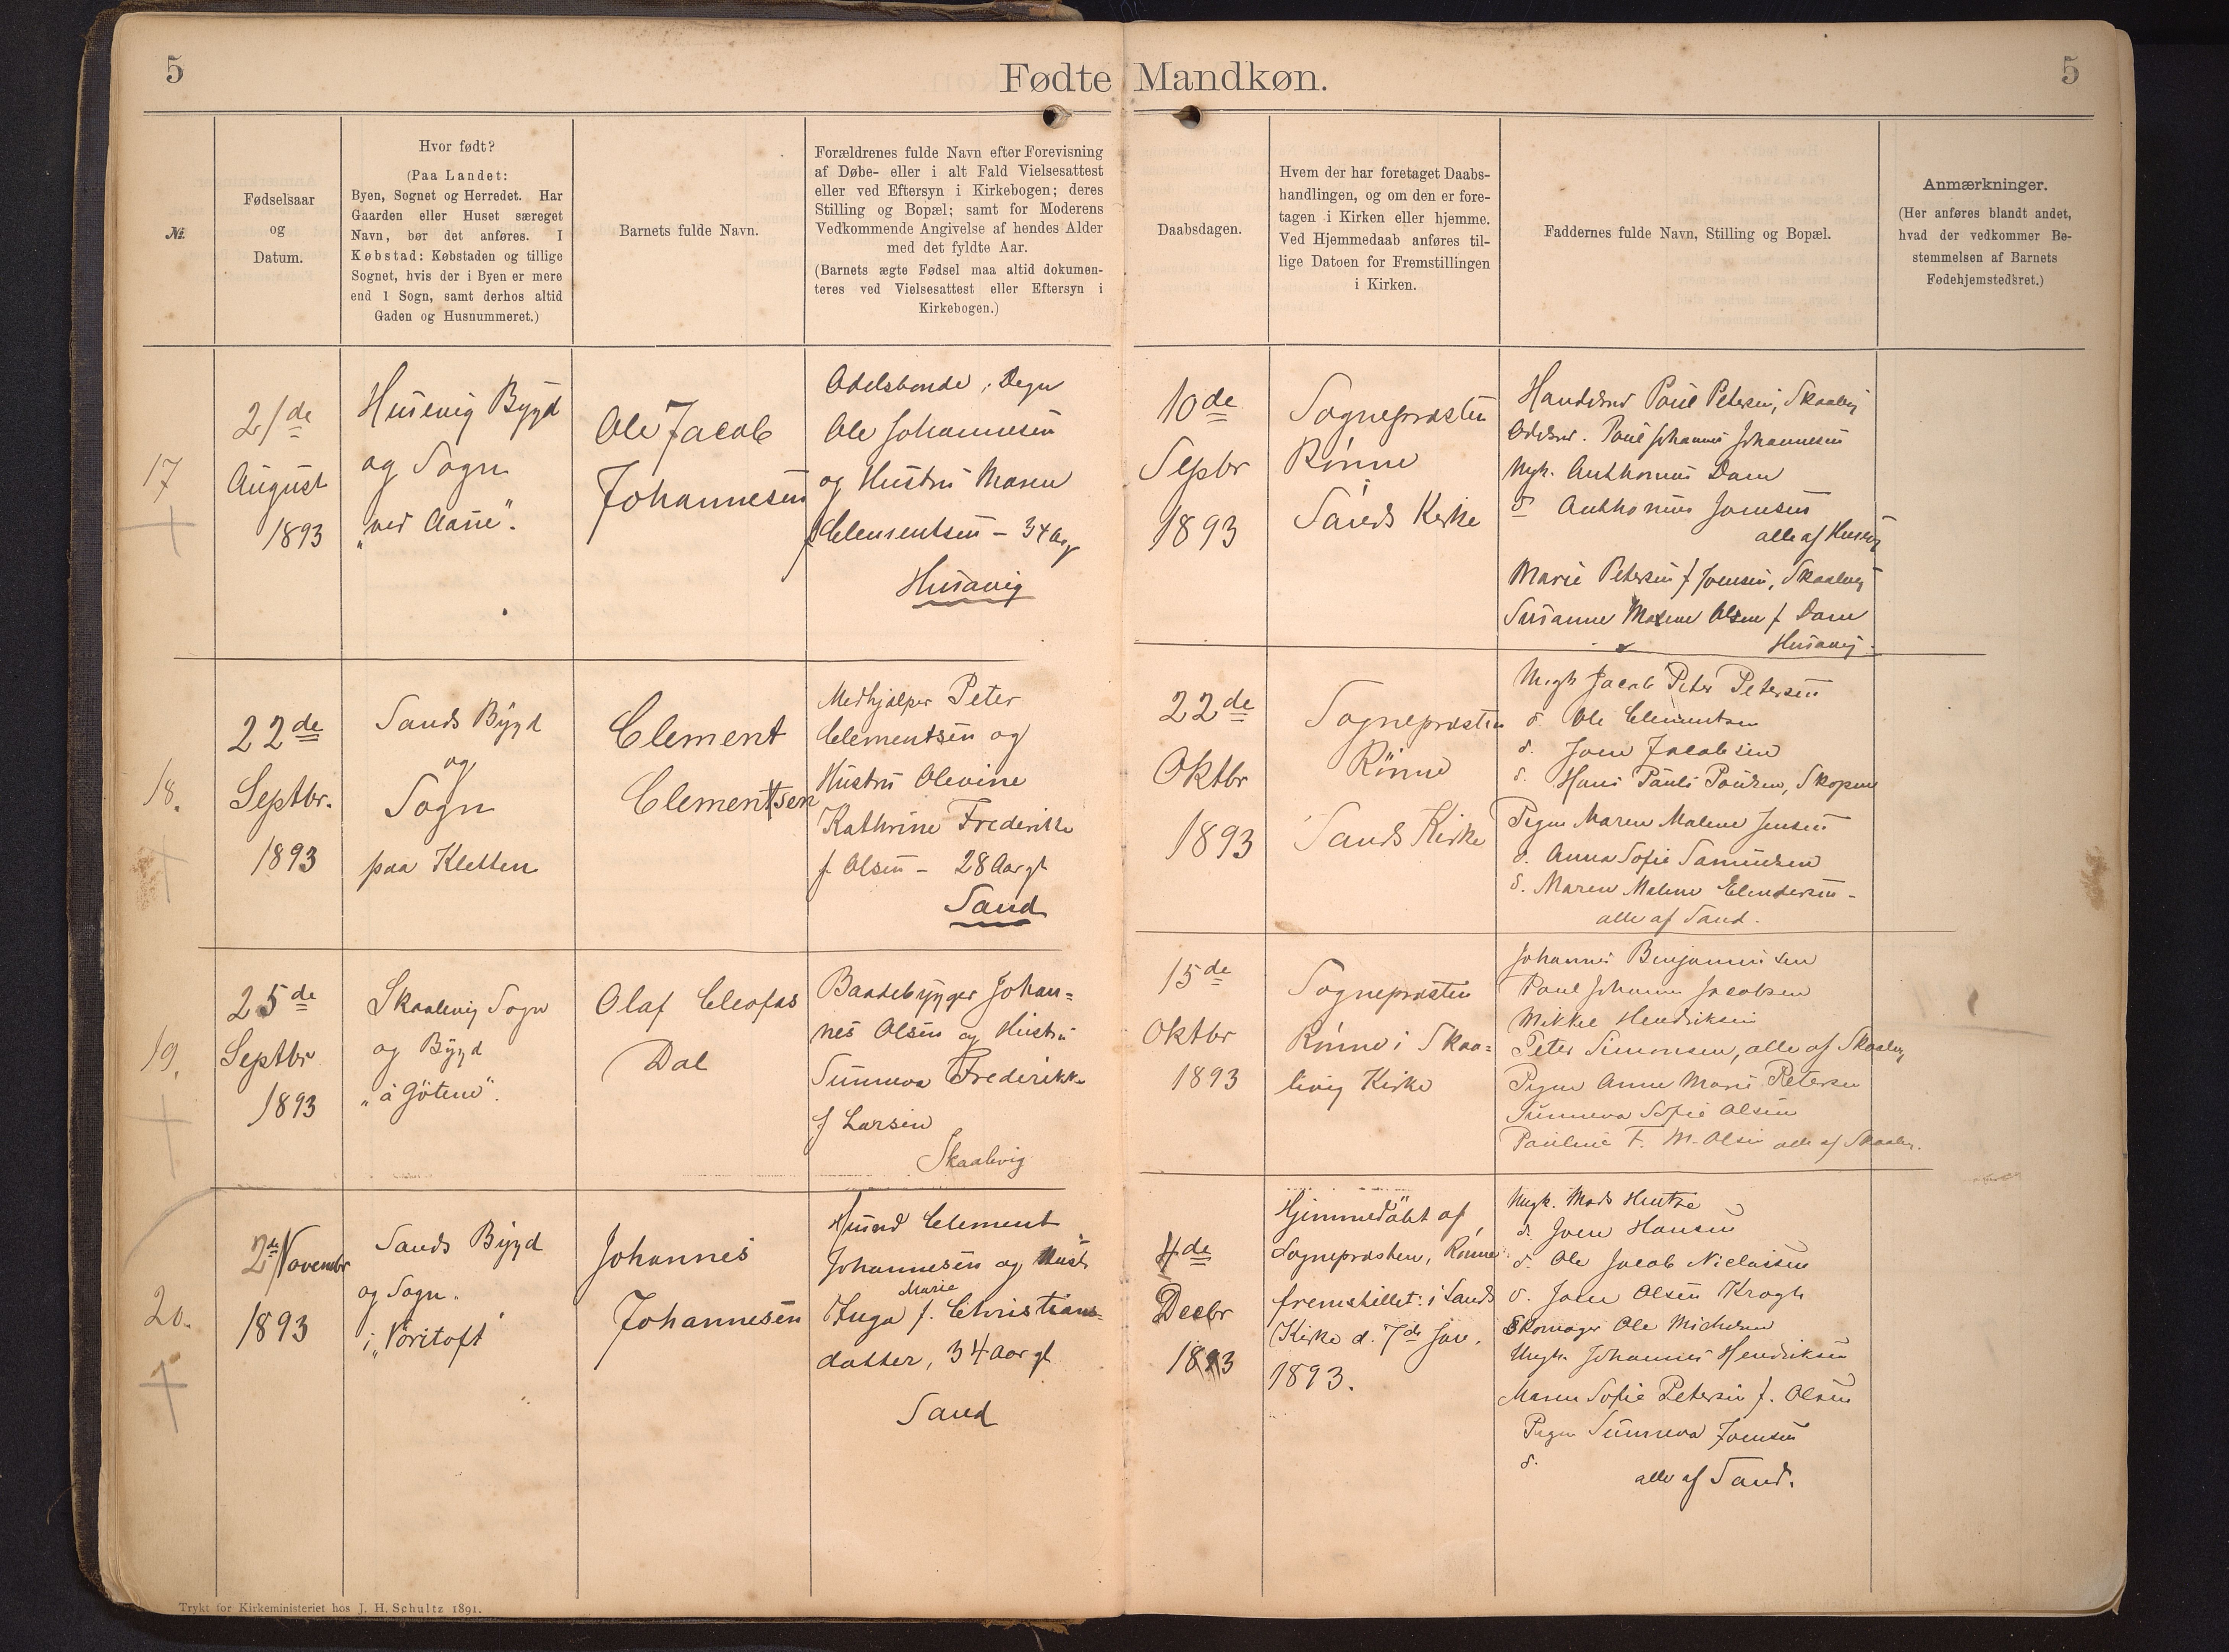 5
Fødte Mandkøn.
5
№.
Fødselsaar
og
Datum.
Hvor født?
(Paa Landet:
Byen, Sognet og Herredet. Har
Gaarden eller Huset særeget
Navn, bør det anføres. I
Købstad: Købstaden og tillige
Sognet, hvis der i Byen er mere
end 1 Sogn, samt derhos altid
Gaden og Husnummeret.)
Barnets fulde Navn.
Forældrenes fulde Navn efter Forevisning
af Døbe- eller i alt Fald Vielsesattest
eller ved Eftersyn i Kirkebogen; deres
Stilling og Bopæl; samt for Moderens
Vedkommende Angivelse af hendes Alder
med det fyldte Aar.
(Barnets ægte Fødsel maa altid dokumen-
teres ved Vielsesattest eller Eftersyn i
Kirkebogen.)
Daabsdagen.
Hvem der har foretaget Daabs-
handlingen, og om den er fore-
tagen i Kirken eller hjemme.
Ved Hjemmedaab anføres til-
lige Datoen for Fremstillingen
i Kirken.
Faddernes fulde Navn, Stilling og Bopæl.
Anmærkninger.
(Her anføres blandt andet,
hvad der vedkommer Be-
stemmelsen af Barnets
Fødehjemstedsret.)
17
21de
August
1893
Husevig Bygd
og Sogn
Ole Jacob
Johannesen
Odelsbonde, Degn
Ole Johannesen
og Hustru Maren
f Clementsen - 34 Aar
Husavig
10de
Sepbr
1893
Sognepræsten
Rönne
Sands Kirke
Poul Petersen, Skaalevig
Poul Johannes Johannesen
Ungk. Anthonius Dam
d Anthonius Joensen
alle af Husevig
Marie Petersen f Joensen, Skaalevig
Susanne Malene Olsen f Dam
Husavig
18.
22de
Septbr.
1893
Sands Bygd
og
Sogn
paa Kletten
Clement
Clementsen
Medhjælper Peter
Clementsen og
Hustru Olevine
Kathrine Frederikke
f Olsen - 28 Aar gl
Sand
22de
Oktbr
1893
Sognepræsten
Rönne
Sands Kirke
Ungk Jacob Peter Petersen
d. Ole Clementsen
d. Joen Jacobsen
d. Hans Pauli Poulsen, Skopen
Pigen Maren Malene Jensen
d. Anna Sofie Samuelsen
d. Maren Malene
alle af Sand.
19.
25de
Septbr
1893
Skaalevig Sogn
og Bygd
„á Götene“.
Olaf Cleofas
Dal
Baadebygger Johan=
nes Olsen og Hustru
Sunneva Frederikke
f Larsen
Skaalevig
15de
Oktbr
1893
Sognepræsten
Rönne i Skaa=
levig Kirke
Johannes Benjaminsen
Poul Johannes Jacobsen
Mikkel Hendriksen
Peter Simonsen, alle af Skaalevig
Pigen Anne Marie Petersen
Sunneva Sofie Olsen
Pauline F. M. Olsen alle af Skaalev.
20.
2de Novembr
1893
Sands Bygd
og Sogn.
Johannes
Johannesen
Husmd Clement
Johannesen og Hust.
Marie
Inga f. Christians=
datter, 34 Aar gl
Sand
4de
Decbr
1893
Hjemmedöbt af
Sognepræsten, Rönne
fremstillet: i Sands
Kirke d. 7de Jan.
1893.
Ungk. Mads Hentze
d. Joen Hansen
d. Ole Jacob Niclasen
d. Joen Olsen Krogh
Skomager Ole Michelsen
Ungk. Johannes Hendriksen
Maren Sofie Petersen f. Olsen
Pigen Sunneva Joensen
d.
alle af Sand.
Trykt for Kirkeministeriet hos J. H. Schultz 1891.